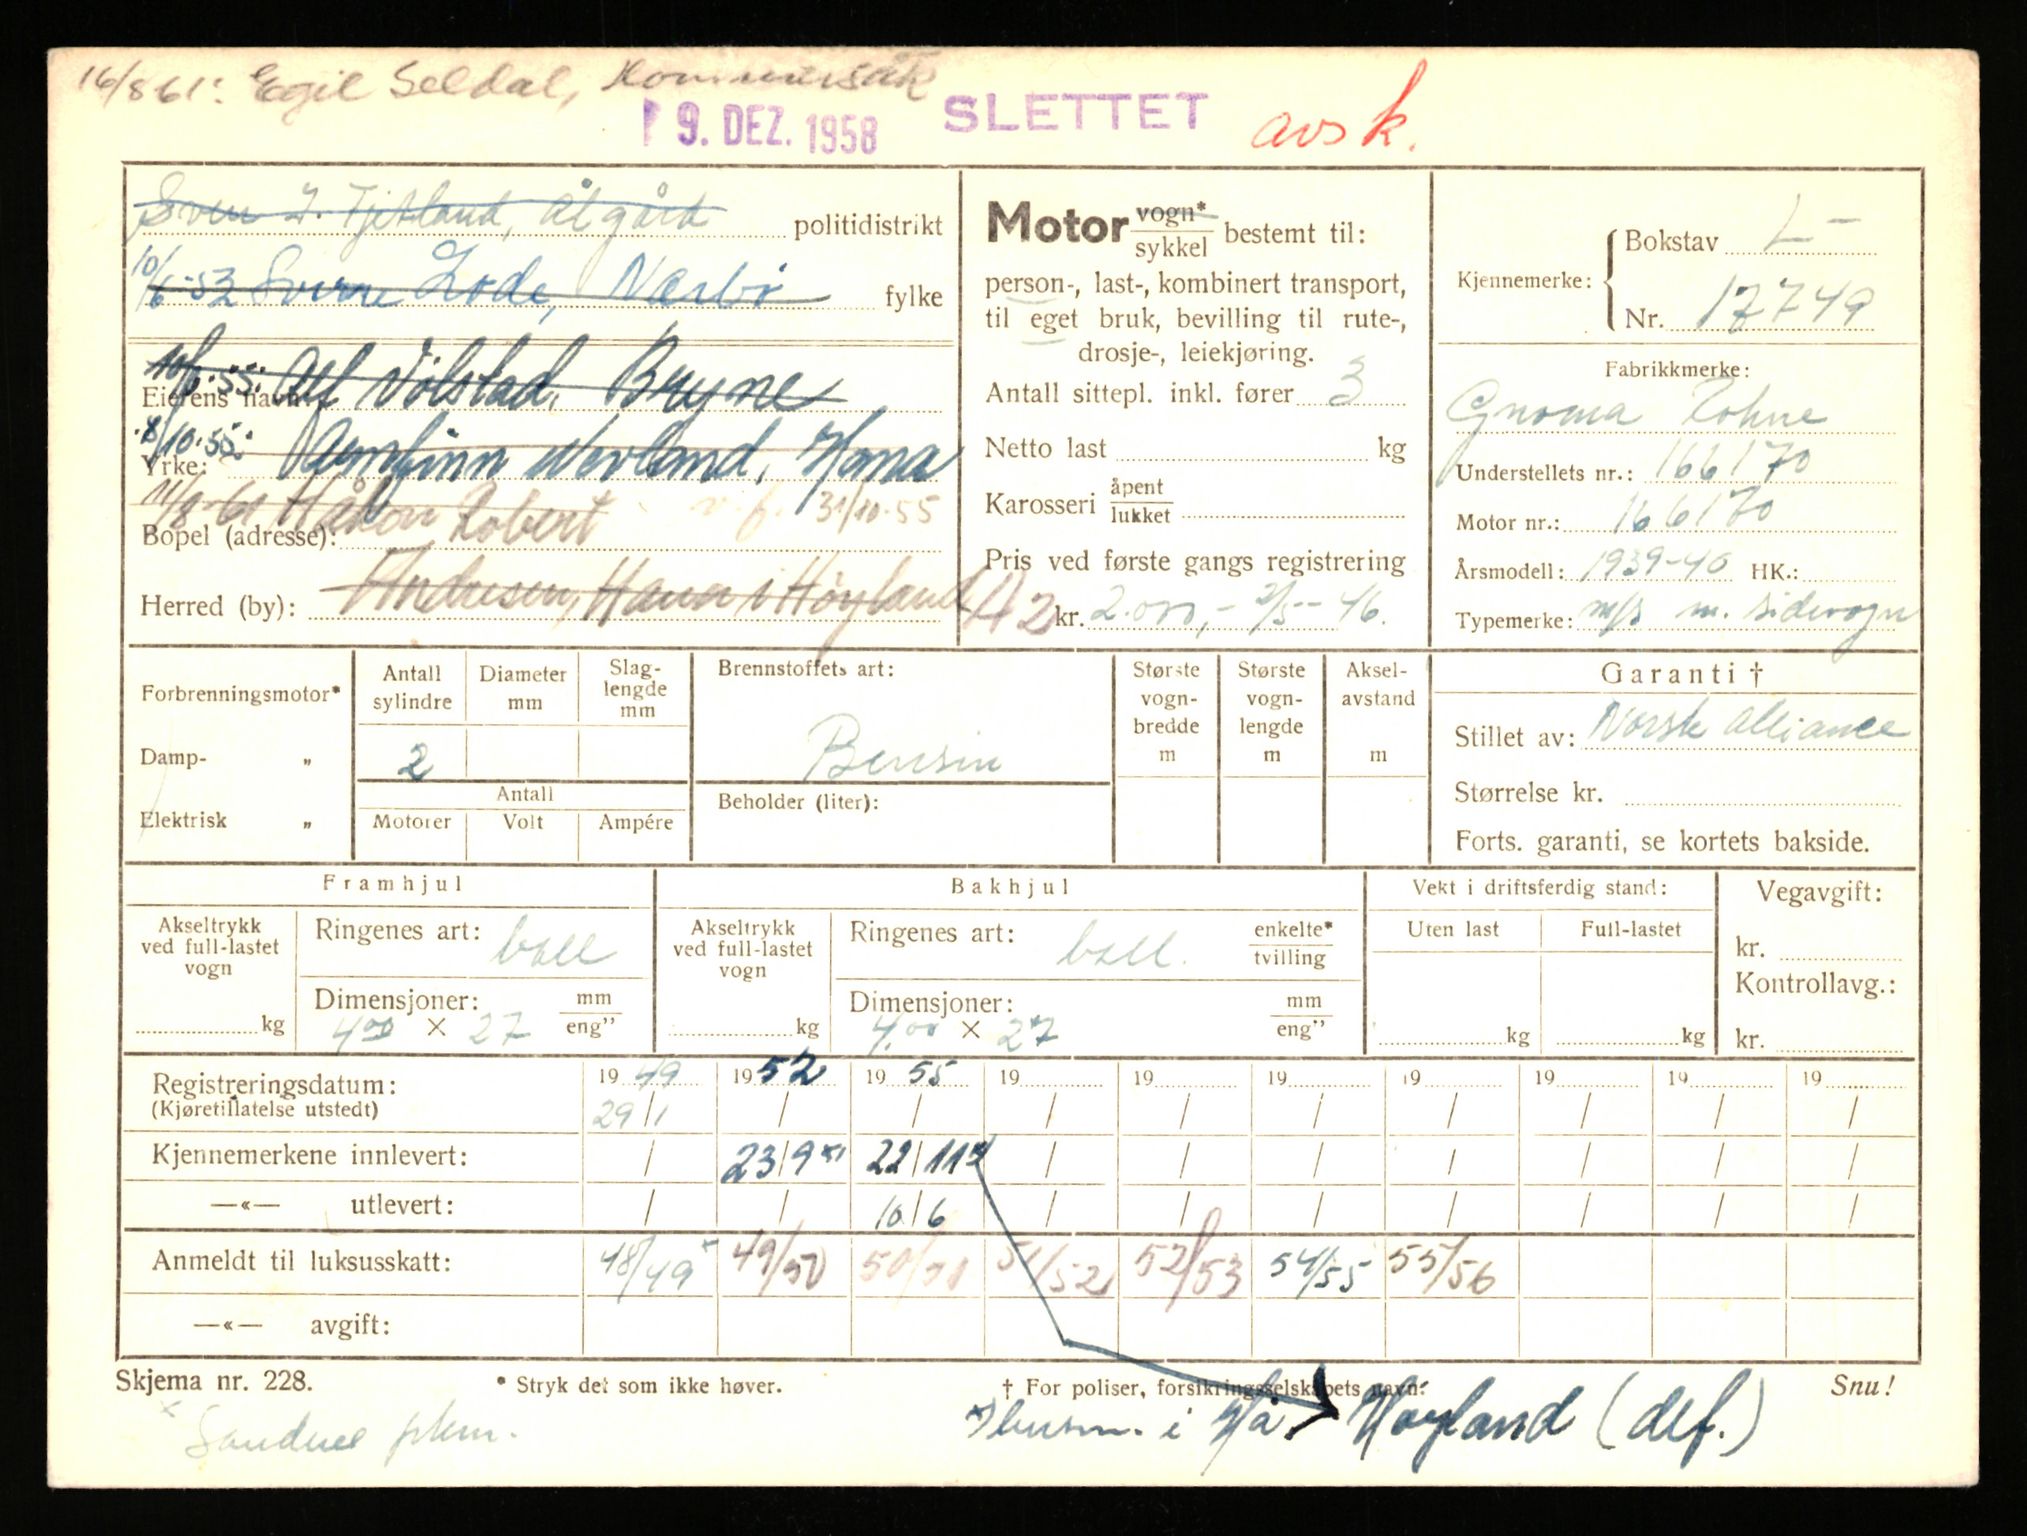 16/8 61: Egil Seldal, Hommersåk
9. DEZ. 1958 SLETTET avsk.
Sven I. Tjetland, Ålgård politidistrikt
10/6-52 Sverre Lode, Nærbø fylke
10/6.55: Alf Vølstad, Bryne
Eierens navn:
8/10.55: Arnfinn Nerland, Hana
Yrke:
11/8-61 Håkon Robert v. f. 31/10.55
Bopel (adresse):
Herred (by): Andresen, Hana i Høyland
Motor vogn* / sykkel bestemt til:
person-, last-, kombinert transport,
til eget bruk, bevilling til rute-,
drosje-, leiekjøring.
Antall sittepl. inkl. fører 3
Netto last kg
Karosseri åpent / lukket
Pris ved første gangs registrering
42 kr. 2.000,- 2/5-46.
Kjennemerke: Bokstav L-
Nr. 17749
Fabrikkmerke:
Gnoma Rohne
Understellets nr.: 166170
Motor nr.: 166170
Årsmodell: 1939-40 HK.:
Typemerke: m/s m. sidevogn
Forbrenningsmotor*
Damp- „
Elektrisk „
Antall sylindre
2
Diameter mm
Slag-lengde mm
Antall
Motorer Volt Ampére
Brennstoffets art:
Bensin
Beholder (liter):
Største vogn-bredde m
Største vogn-lengde m
Aksel-avstand m
Garanti †
Stillet av: Norsk Alliance
Størrelse kr.
Forts. garanti, se kortets bakside.
Framhjul
Akseltrykk ved full-lastet vogn
kg
Ringenes art: ball
Dimensjoner: mm / eng”
4.00 × 27
Bakhjul
Akseltrykk ved full-lastet vogn
kg
Ringenes art: ball. enkelte* / tvilling
Dimensjoner: mm / eng”
4.00 × 27
Vekt i driftsferdig stand:
Uten last Full-lastet
kg kg
Vegavgift:
kr.
Kontrollavg.:
kr.
Registreringsdatum: 1949 1952 1955 19 19 19 19 19 19 19
(Kjøretillatelse utstedt) 29/1 / / / / / / / / /
Kjennemerkene innlevert: / 23/9 22/11 / / / / / / /
—«— utlevert: / / 10/6 / / / / / / /
Anmeldt til luksusskatt: 48/49 49/50 50/51 51/52 52/53 54/55 55/56
—«— avgift:
Skjema nr. 228. * Stryk det som ikke høver. † For poliser, forsikringsselskapets navn. Snu!
x Sandnes pkm. x) busm. i Hå > Høyland (def.)